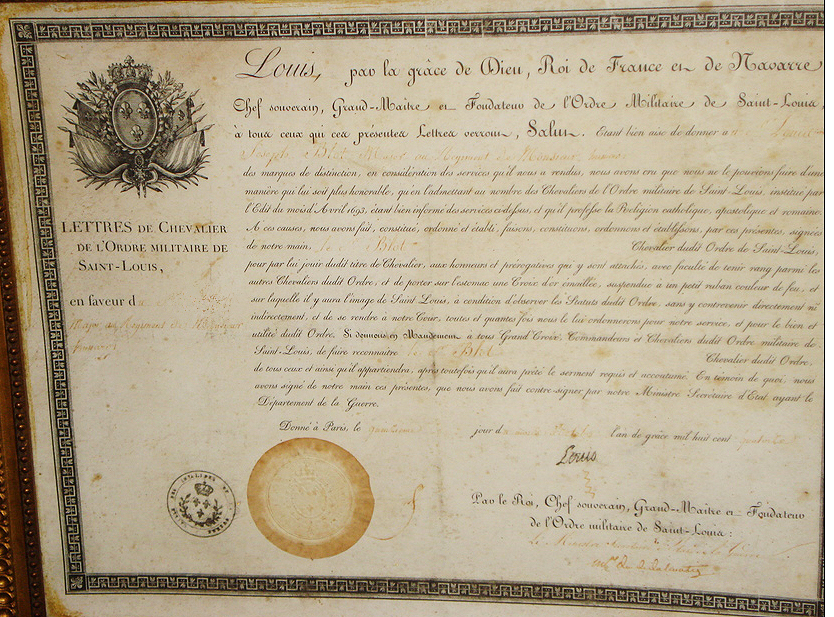 Louis, par la grâce de Dieu, Roi de France et de Navarre
Chef souverain, Grand-Maître et Fondateur de l'Ordre Militaire de Saint-Louis,
à tous ceux qui ces présentes Lettres verront, Salut. Etant bien aise de donner
Joseph Blot Major au Régiment de Monsieur
des marques de distinction, en considération des services qu'il nous a rendus, nous avons cru que nous ne le pouvions faire d'une
manière qui lui soit plus honorable, qu'en l'admettant au nombre des Chevaliers de l'Ordre militaire de Saint-Louis, institué par
l'Edit du mois d'Avril 1693, étant bien informé des services ci-dessus, et qu'il professe la Religion catholique, apostolique et romaine.
A ces causes, nous avons fait, constitué, ordonné et établi, faisons, constituons, ordonnons et établissons, par ces présentes, signées
de notre main, le Blot Chevalier dudit Ordre de Saint-Louis,
pour par lui jouir dudit titre de Chevalier, aux honneurs et prérogatives qui y sont attachés, avec faculté de tenir rang parmi les
autres Chevaliers dudit Ordre, et de porter sur l'estomac une Croix d'or émaillée, suspendue à un petit ruban couleur de feu, et
sur laquelle il y aura l'image de Saint Louis, à condition d'observer les Statuts dudit Ordre, sans y contrevenir directement ni
indirectement, et de se rendre à notre Cour, toutes et quantes fois nous le lui ordonnerons pour notre service, et pour le bien et
utilité dudit Ordre. Si donnons en Mandement à tous Grand'Croix, Commandeurs et Chevaliers dudit Ordre militaire de
Saint-Louis, de faire reconnaître le Blot Chevalier dudit Ordre,
de tous ceux et ainsi qu'il appartiendra, après toutefois qu'il aura prêté le serment requis et accoutumé. En témoin de quoi, nous
avons signé de notre main ces présentes, que nous avons fait contre-signer par notre Ministre Secrétaire d'Etat ayant le
Département de la Guerre.
Donné à Paris, le jour d l'an de grâce mil huit cent
Louis
Par le Roi, Chef souverain, Grand-Maître et Fondateur
de l'Ordre militaire de Saint-Louis :
LETTRES DE CHEVALIER
DE L'ORDRE MILITAIRE DE
SAINT-LOUIS,
en faveur du
Major au Régiment de Monsieur